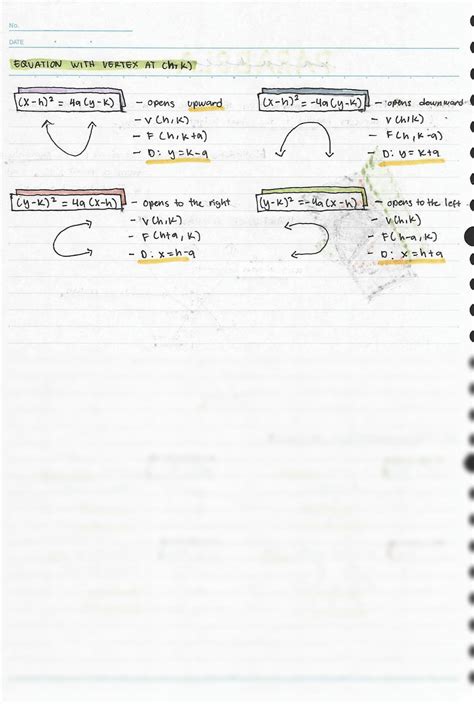 No.
DATE
EQUATION WITH VERTEX AT (h, k)
(x-h)² = 4a(y-k) - opens upward
- V(h,k)
- F(h, k+a)
- D: y=k-a
(x-h)² = -4a(y-k) - opens downward
- V(h,k)
- F(h, k-a)
- D: y=k+a
(y-k)² = 4a(x-h) - opens to the right
- V(h,k)
- F(h+a, k)
- D: x=h-a
(y-k)² = -4a(x-h) - opens to the left
- V(h,k)
- F(h-a, k)
- D: x=h+a